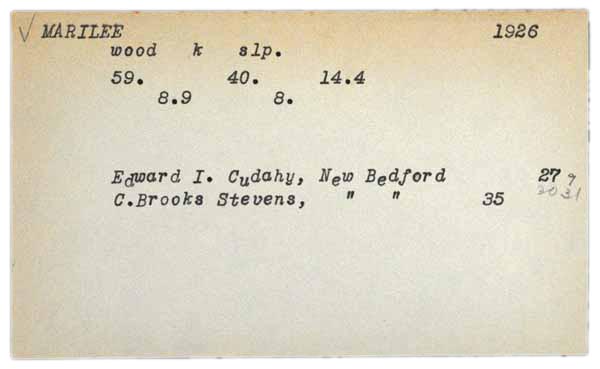 √ MARILEE 1926
wood k slp.
59. 40. 14.4
8.9 8.
Edward I. Cudahy, New Bedford 27 9
30 31
C.Brooks Stevens, " " 35